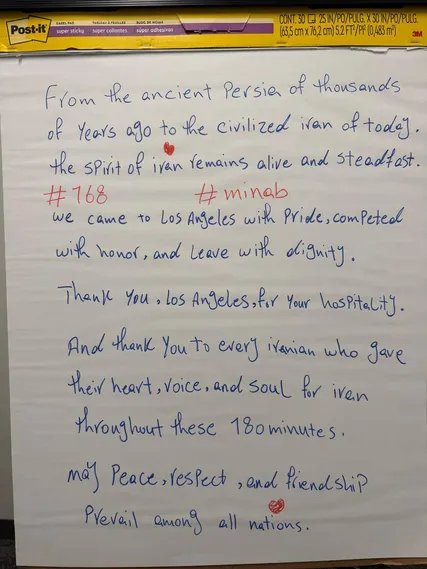 Post-it
EASEL PAD
super sticky
TABLEAU À FEUILLES
super collantes
super adhesivas
CONT. 30 25 IN/PO/PULG. X 30 IN/PO/PULG.
(63,5 cm x 76,2 cm) 5.2 FT²/PI² (0,483 m²)
3M
From the ancient Persia of thousands
of Years ago to the civilized iran of today.
the spirit of iran remains alive and steadfast.
#168 #minab
we came to Los Angeles with Pride, competed
with honor, and Leave with dignity.
Thank You, Los Angeles, for Your hospitality.
And thank You to every iranian who gave
their heart, voice, and soul for iran
throughout these 180 minutes.
may Peace, respect, and friendship
Prevail among all nations.